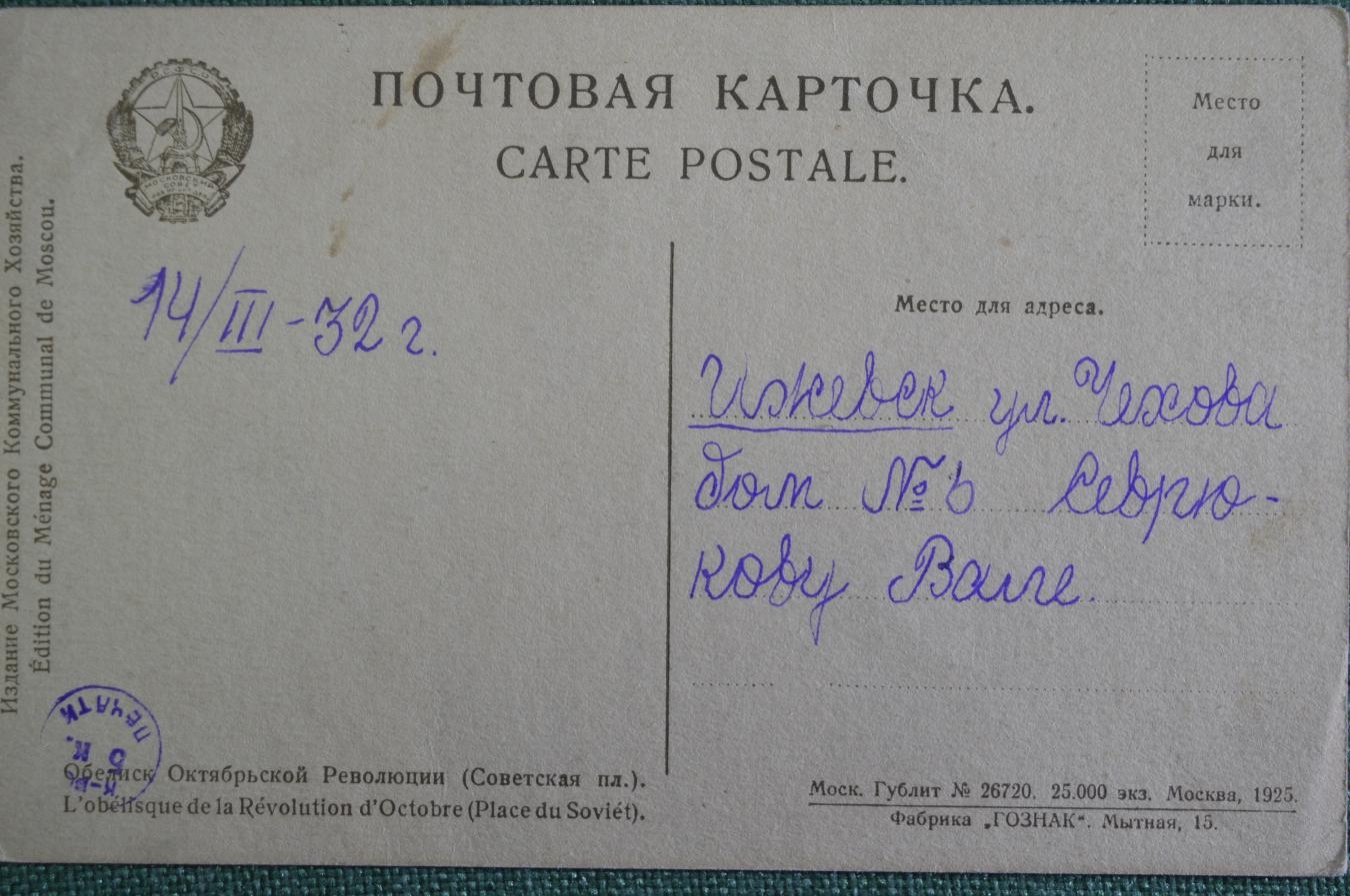 ПОЧТОВАЯ КАРТОЧКА.
CARTE POSTALE.
Место
для
марки.
МОСКОВСКИЙ
СОВЕТ
Издание Московского Коммунального Хозяйства.
Édition du Ménage Communal de Moscou.
14/III-32 г.
Место для адреса.
Ижевск ул. Чехова
дом № 6 Севрю-
кову Ване.
ПЕЧАТИ
5 К.
Обелиск Октябрьской Революции (Советская пл.).
L'obélisque de la Révolution d'Octobre (Place du Soviét).
Моск. Гублит № 26720. 25.000 экз. Москва, 1925.
Фабрика „ГОЗНАК“. Мытная, 15.